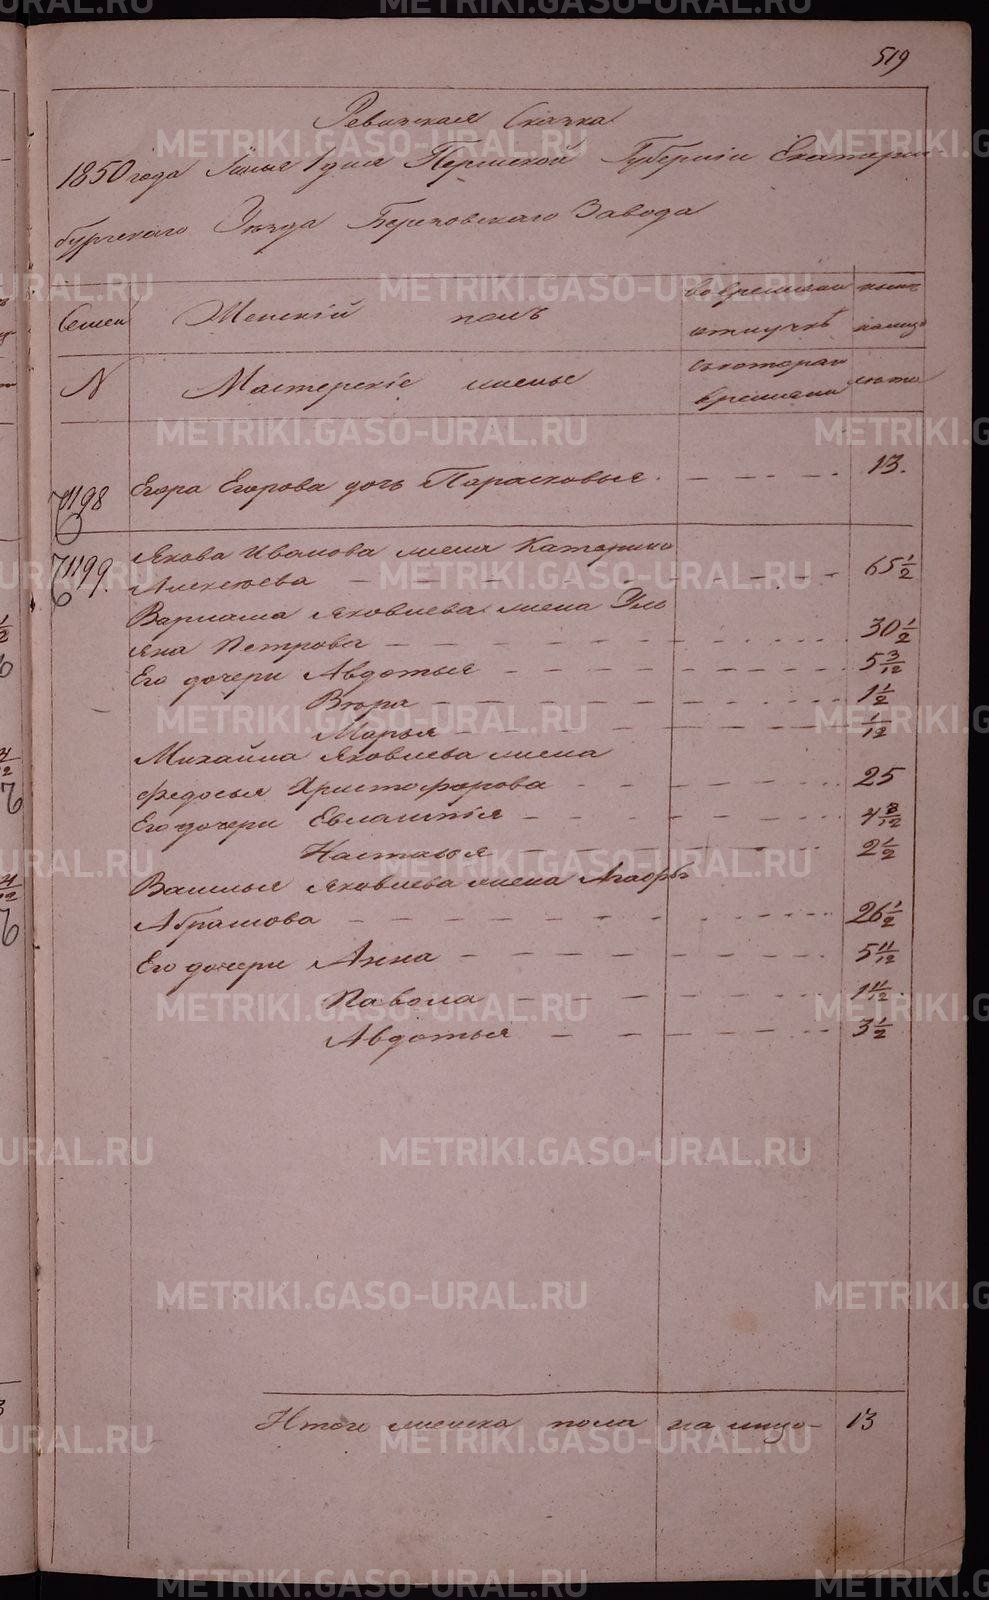 519
Ревижская Сказка
1850 года Июня 1 дня Пермской Губернии Екатерин
бургскаго Уезда Березовскаго Завода
Семей Женскій полъ во временной отлучкѣ
N Мастерскіе жены съ котораго времени лѣта
1198 Егора Егорова дочь Парасковья 13.
1199. Якова Иванова жена Катерина
Алексѣева 65 1/2
Варлама Яковлева жена Улья
яна Петрова 30 1/2
Его дочери Авдотья 5 3/12
Втора 1 1/2
Марья 1/12
Михайла Яковлева жена
Федосья Христофорова 25
Его дочери Евлампія 4 8/12
Настасья 2 1/2
Василья Яковлева жена Агафья
Абрамова 26 1/2
Его дочери Анна 5 11/12
Павола 1 11/12
Авдотья 3 1/2
Итого женска пола на лицо 13
METRIKI.GASO-URAL.RU